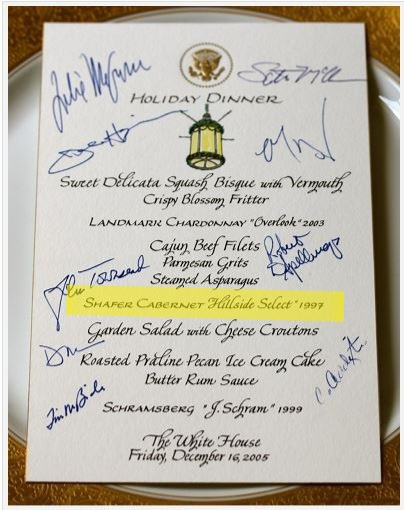 HOLIDAY DINNER
SWEET DELICATA SQUASH BISQUE WITH VERMOUTH
CRISPY BLOSSOM FRITTER
LANDMARK CHARDONNAY "OVERLOOK" 2003
CAJUN BEEF FILETS
PARMESAN GRITS
STEAMED ASPARAGUS
John Townsend
SHAFER CABERNET "HILLSIDE SELECT" 1997
GARDEN SALAD WITH CHEESE CROUTONS
ROASTED PRALINE PECAN ICE CREAM CAKE
BUTTER RUM SAUCE
SCHRAMSBERG "J. SCHRAM" 1999
THE WHITE HOUSE
FRIDAY, DECEMBER 16, 2005